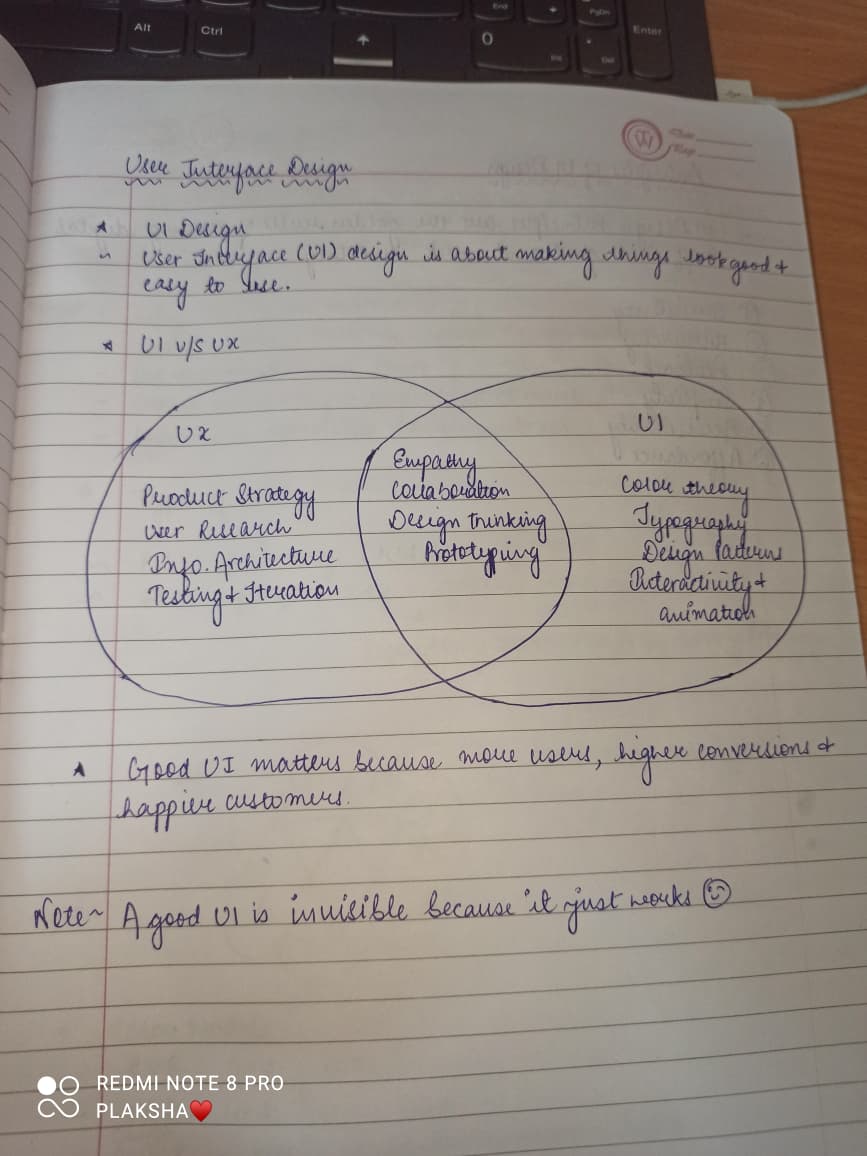 Alt
Ctrl
End
PgDn
0
Ins
Del
Enter
User Interface Design
UI Design
User Interface (UI) design is about making things look good +
easy to use.
UI v/s UX
UX
Product Strategy
User Research
Info. Architecture
Testing + Iteration
Empathy
Collaboration
Design thinking
Prototyping
UI
Color theory
Typography
Design Patterns
Interactivity +
animation
Good UI matters because more users, higher conversions +
happier customers.
Note~ A good UI is invisible because it just works
REDMI NOTE 8 PRO
PLAKSHA❤️